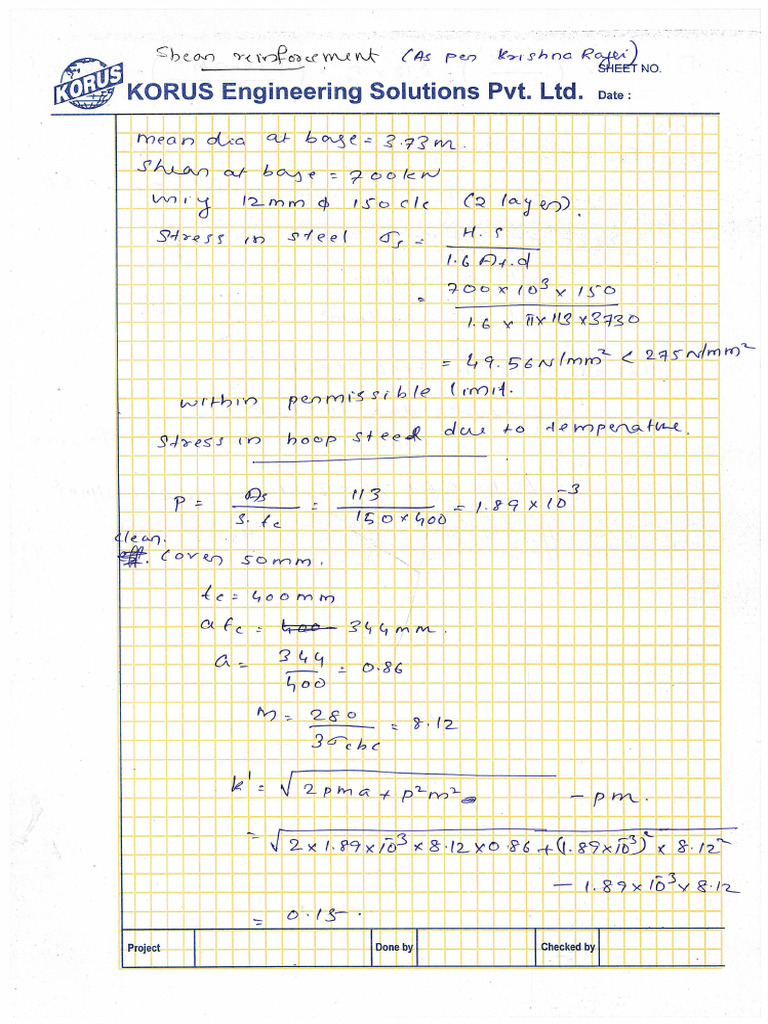 Shear reinforcement (As per Krishna Raju)
SHEET NO.
KORUS
KORUS Engineering Solutions Pvt. Ltd.
Date :
mean dia at base = 3.73m.
Shear at base = 700kN
using 12mm φ 150 c/c (2 layers).
Stress in steel σs = H.S / 1.6 At.d
= 700 × 10³ × 150 / 1.6 × π × 113 × 3730
= 49.56 N/mm² < 275 N/mm²
within permissible limit.
Stress in hoop steel due to temperature.
P = As / S.tc = 113 / 150×400 = 1.89 × 10⁻³
clear.
cover 50mm.
tc = 400mm
atc = 344mm.
a = 344 / 400 = 0.86
m = 280 / 3σcbc = 8.12
k' = √(2pma + p²m²) - pm.
= √(2 × 1.89×10⁻³ × 8.12 × 0.86 + (1.89×10⁻³)² × 8.12²)
- 1.89×10⁻³ × 8.12
= 0.15.
Project
Done by
Checked by